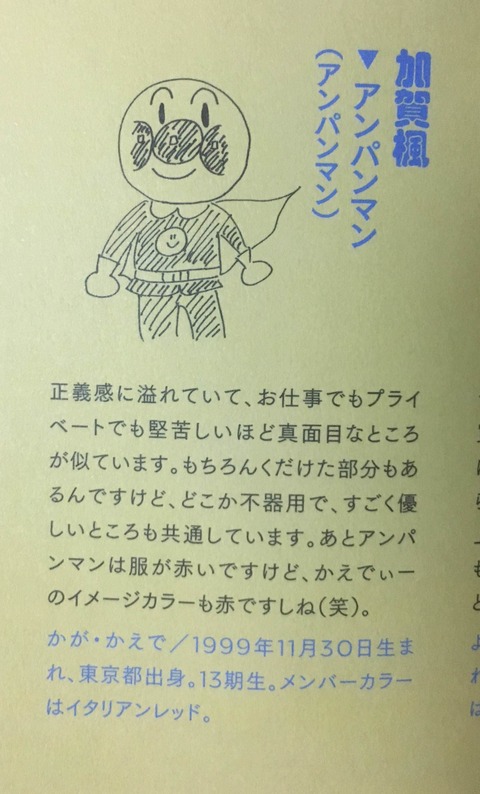 加賀楓
▼アンパンマン
（アンパンマン）
正義感に溢れていて、お仕事でもプライ
ベートでも堅苦しいほど真面目なところ
が似ています。もちろんくだけた部分もあ
るんですけど、どこか不器用で、すごく優
しいところも共通しています。あとアンパ
ンマンは服が赤いですけど、かえでぃー
のイメージカラーも赤ですしね（笑）。
かが・かえで／1999年11月30日生ま
れ、東京都出身。13期生。メンバーカラー
はイタリアンレッド。